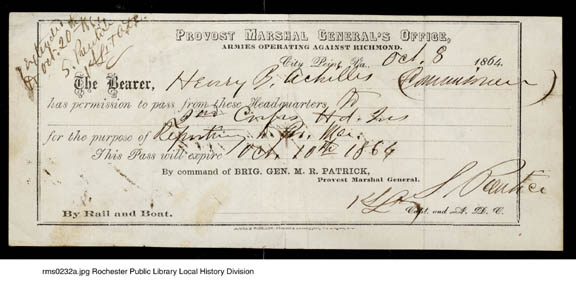 Extended to
Oct. 20th 1864
PROVOST MARSHAL GENERAL'S OFFICE,
ARMIES OPERATING AGAINST RICHMOND.
City Point, Va. Oct. 8 1864.
The Bearer, Henry P. Achilles (
has permission to pass from these Headquarters to
Corps Hd. Qrs
for the purpose of Reporting to
This Pass will expire Oct. 10th 1864
By command of BRIG. GEN. M. R. PATRICK,
Provost Marshal General.
Capt. and A. D. C.
By Rail and Boat.
rms0232a.jpg Rochester Public Library Local History Division